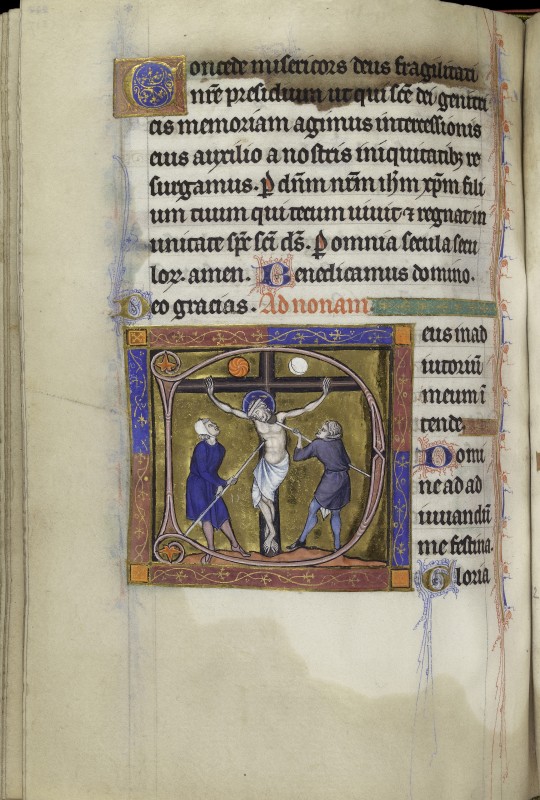 Concede misericors deus fragilitati
nrē presidium ut qui scē dei genitri
cis memoriam agimus intercessionis
eius auxilio a nostris iniquitatibꝫ re
surgamus. ꝑ dn̄m nr̄m ih̄m xp̄m fili
um tuum qui tecum uiuit ⁊ regnat in
unitate sp̄c sc̄i ds̄. ꝑ omnia secula secu
loꝝ. amen. Benedicamus domino.
Deo gracias. Ad nonam.
Deus in ad
iutoriū
meum ī
tende.
Domi
ne ad ad
iuuandū
me festina.
Gloria